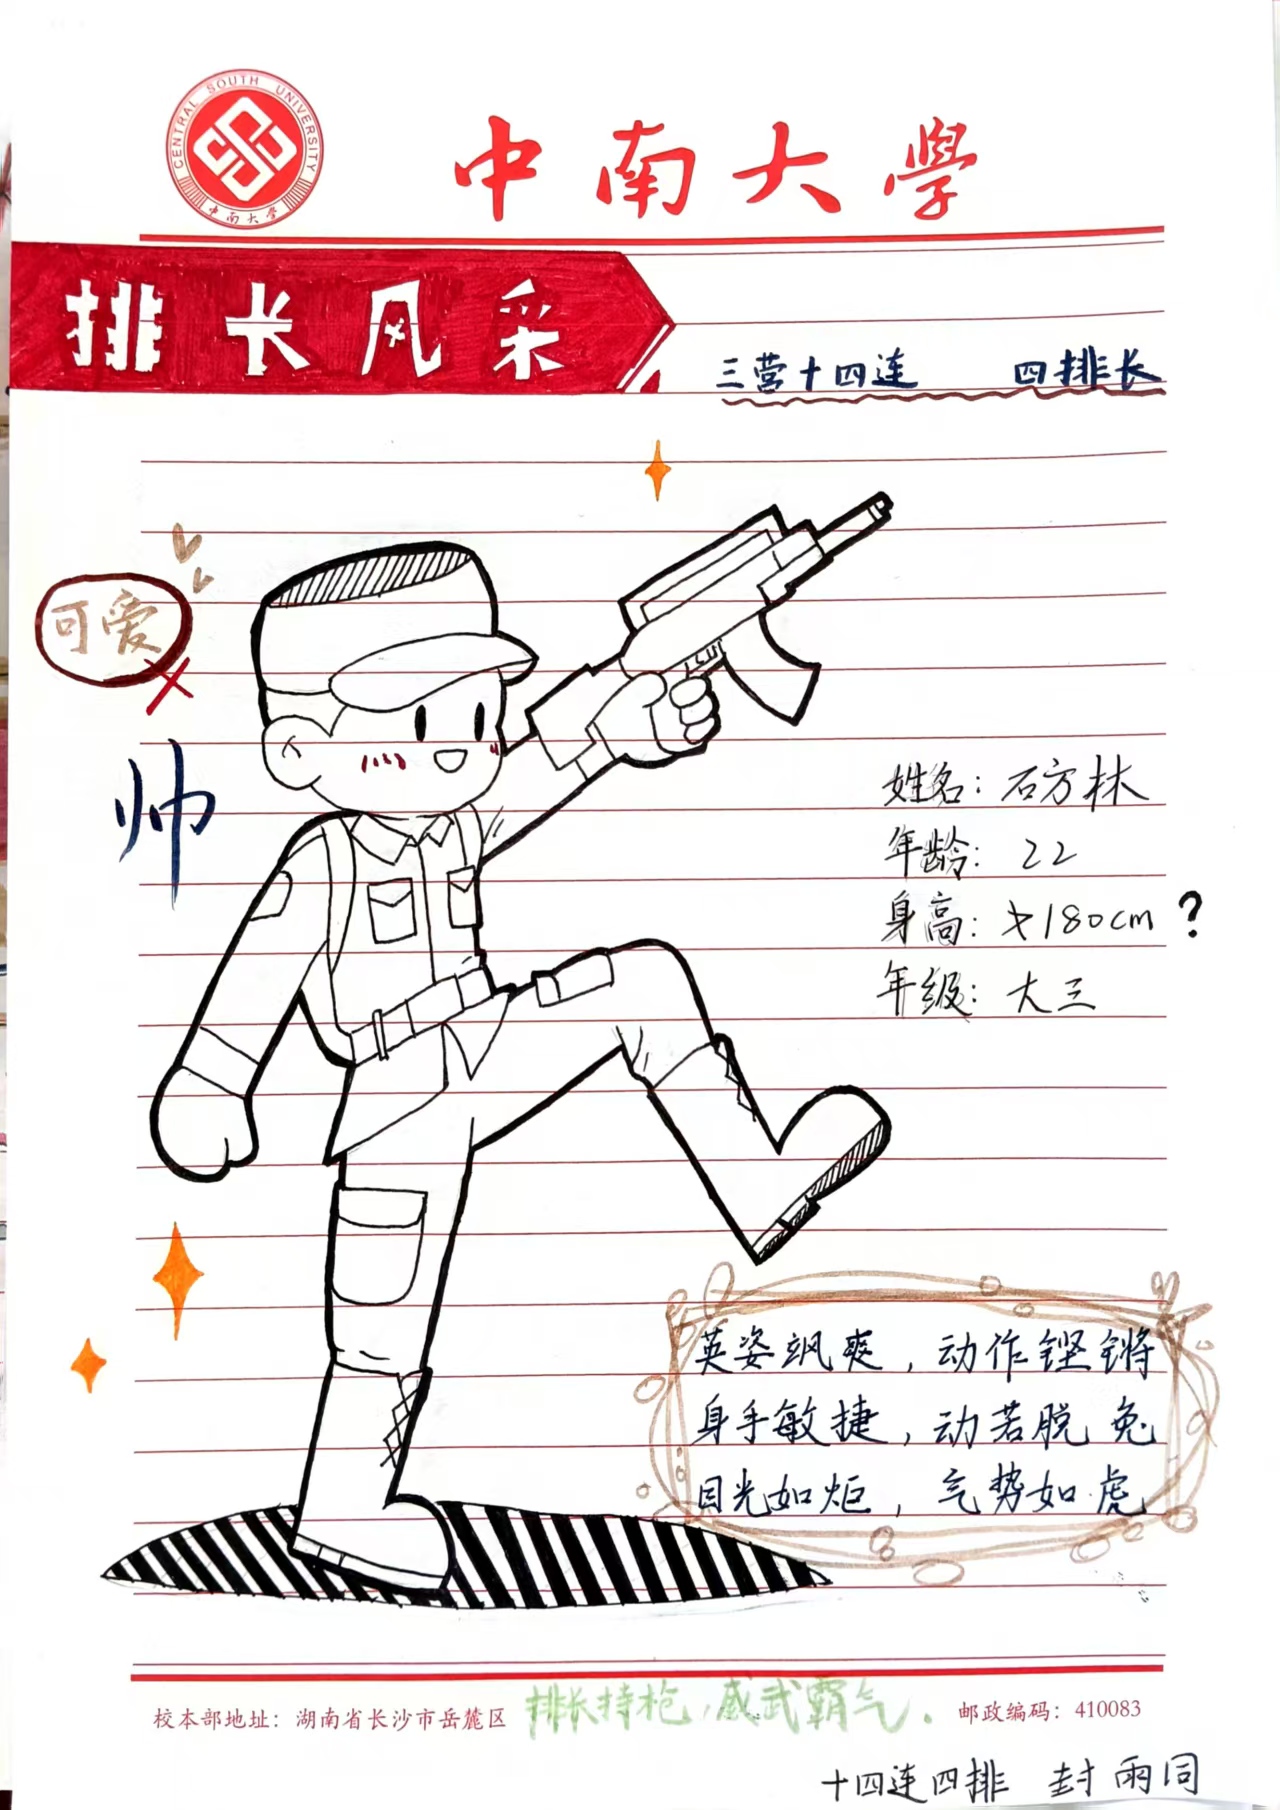 CENTRAL SOUTH UNIVERSITY
中南大学
中南大學
排长风采
三营十四连 四排长
可爱
帅
姓名：石方林
年龄：22
身高：>180cm ?
年级：大三
英姿飒爽，动作铿锵
身手敏捷，动若脱兔
目光如炬，气势如虎
校本部地址：湖南省长沙市岳麓区
排长持枪，威武霸气.
邮政编码：410083
十四连四排 封雨同